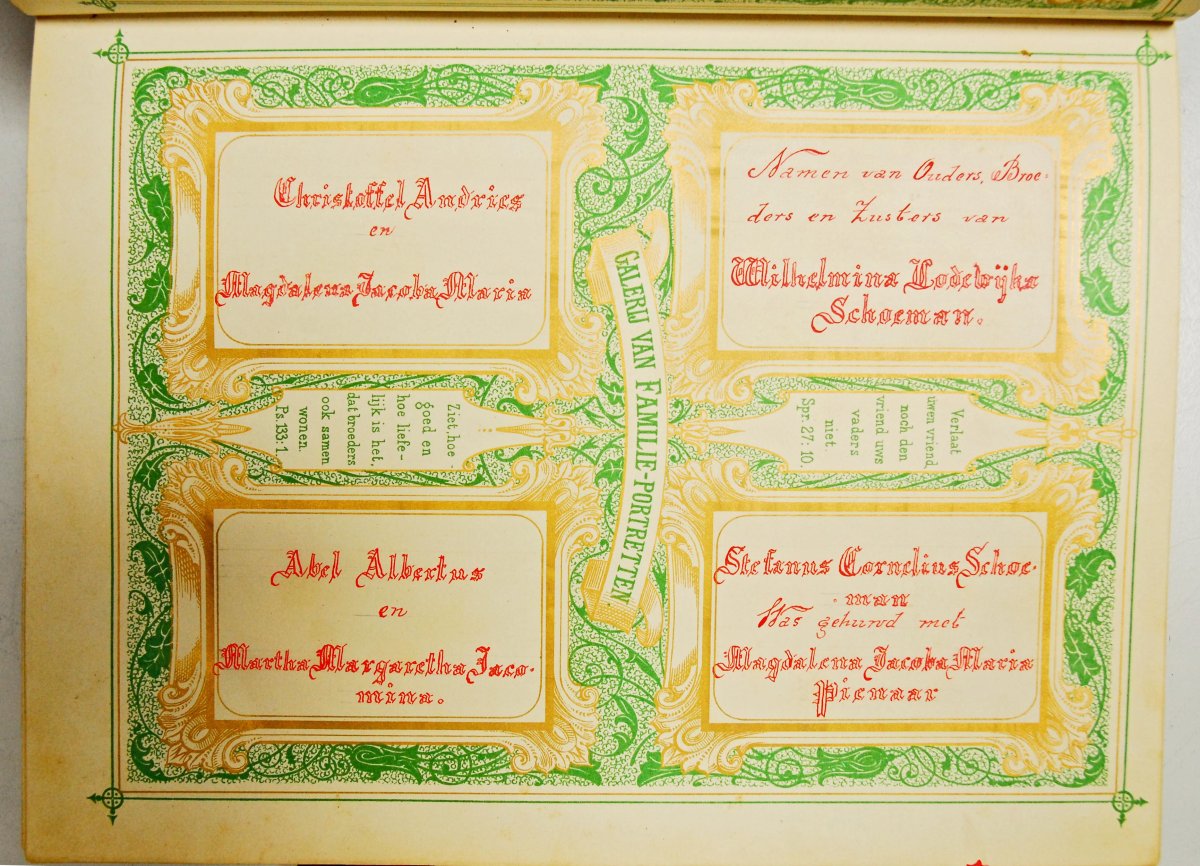 Christoffel Andries
en
Magdalena Jacoba Maria
Namen van Ouders, Broe-
ders en Zusters van
Wilhelmina Lodewÿka
Schoeman.
GALERIJ VAN FAMILIE-PORTRETTEN
Ziet, hoe
goed en
hoe liefe-
lijk is het,
dat broeders
ook samen
wonen.
Ps. 133: 1.
Verlaat
uwen vriend,
noch den
vriend uws
vaders
niet.
Spr. 27: 10.
Abel Albertus
en
Martha Margaretha Jaco-
mina.
Stefanus Cornelius Schoe-
man
Was gehuwd met
Magdalena Jacoba Maria
Pienaar